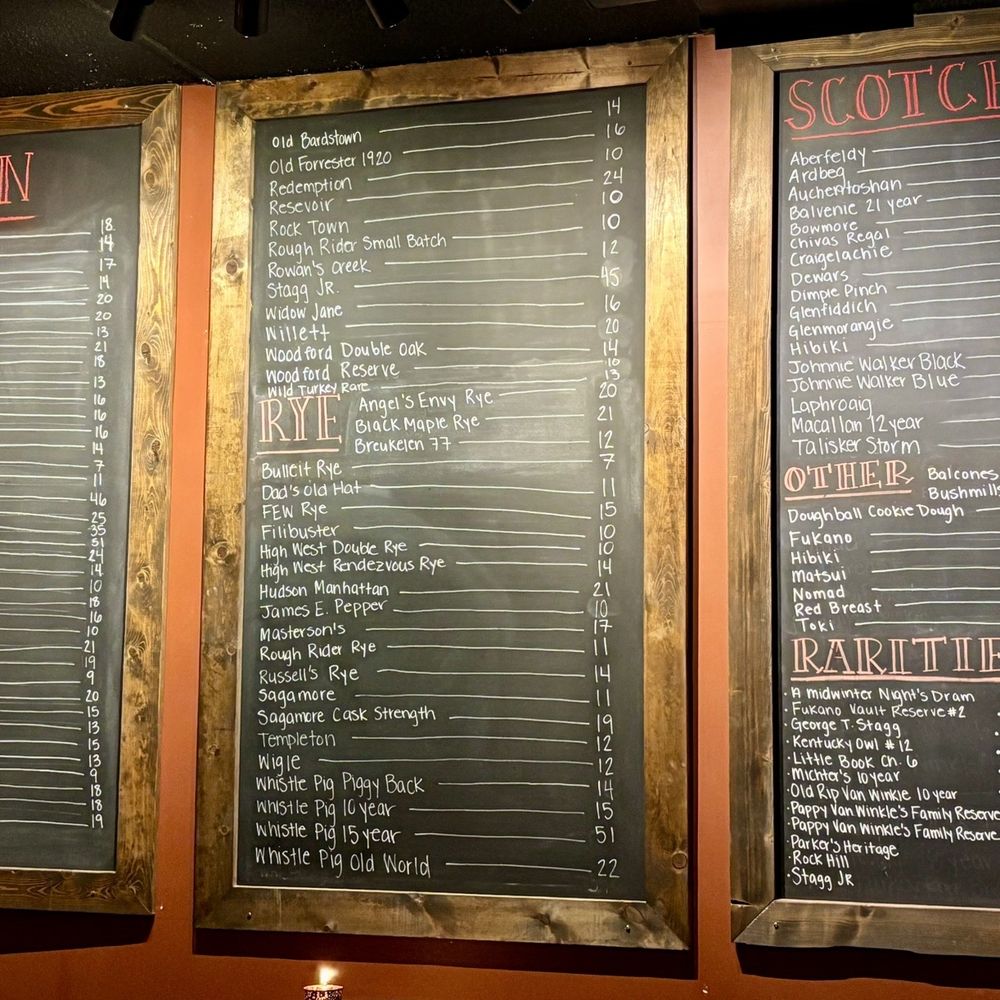 N
18
14
17
14
20
20
13
21
18
13
16
16
16
14
7
11
46
25
35
51
24
14
10
18
16
10
21
19
9
20
15
13
15
13
9
18
18
19
Old Bardstown 14
Old Forrester 1920 16
Redemption 10
Resevoir 24
Rock Town 10
Rough Rider Small Batch 10
Rowan's Creek 12
Stagg JR. 45
Widow Jane 16
Willett 20
Woodford Double Oak 14
Woodford Reserve 10
Wild Turkey Rare 13
RYE
Angel's Envy Rye 20
Black Maple Rye 21
Breukelen 77 12
Bulleit Rye 7
Dad's Old Hat 11
FEW Rye 15
Filibuster 10
High West Double Rye 10
High West Rendezvous Rye 14
Hudson Manhattan 21
James E. Pepper 10
Masterson's 17
Rough Rider Rye 11
Russell's Rye 14
Sagamore 11
Sagamore Cask Strength 19
Templeton 12
Wigle 12
Whistle Pig Piggy Back 14
Whistle Pig 10 year 15
Whistle Pig 15 year 51
Whistle Pig Old World 22
SCOTCH
Aberfeldy
Ardbeg
Auchentoshan
Balvenie 21 year
Bowmore
Chivas Regal
Craigelachie
Dewars
Dimple Pinch
Glenfiddich
Glenmorangie
Hibiki
Johnnie Walker Black
Johnnie Walker Blue
Laphroaig
Macallan 12 year
Talisker Storm
OTHER
Balcones
Bushmills
Doughball Cookie Dough
Fukano
Hibiki
Matsui
Nomad
Red Breast
Toki
RARITIE
· A midwinter Night's Dram
· Fukano Vault Reserve #2
· George T. Stagg
· Kentucky Owl #12
· Little Book Ch. 6
· Michter's 10 year
· Old Rip Van Winkle 10 year
· Pappy Van Winkle's Family Reserve
· Pappy Van Winkle's Family Reserve
· Parker's Heritage
· Rock Hill
· Stagg JR